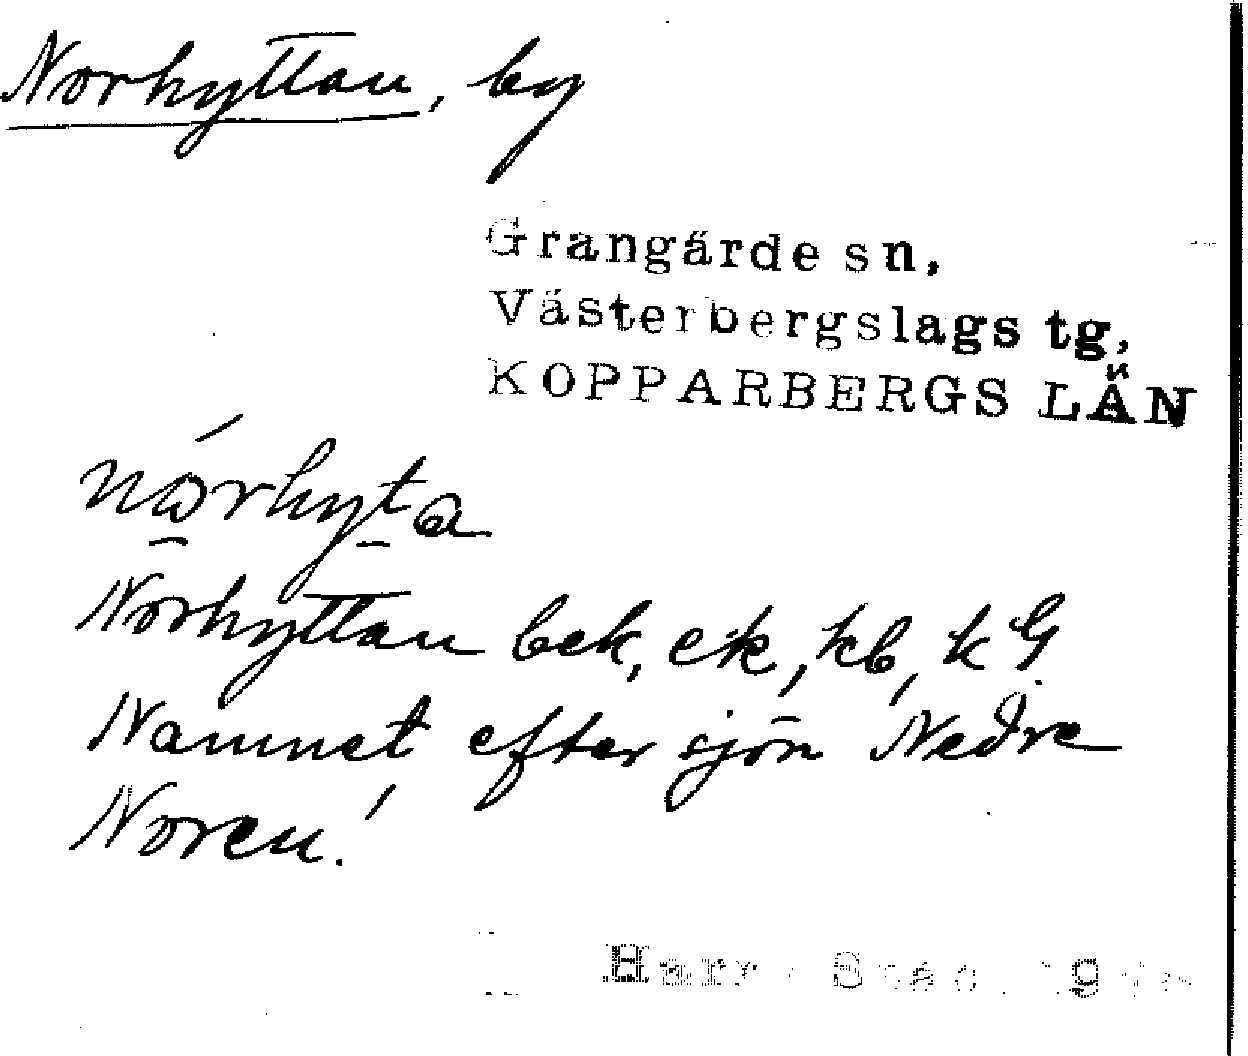 Norhyttan, by
Grangärde sn,
Västerbergslags tg,
KOPPARBERGS LÄN
nørhyta
Norhyttan bek, ek, kb, k G
Namnet efter sjön Nedre
Noren!
Harry